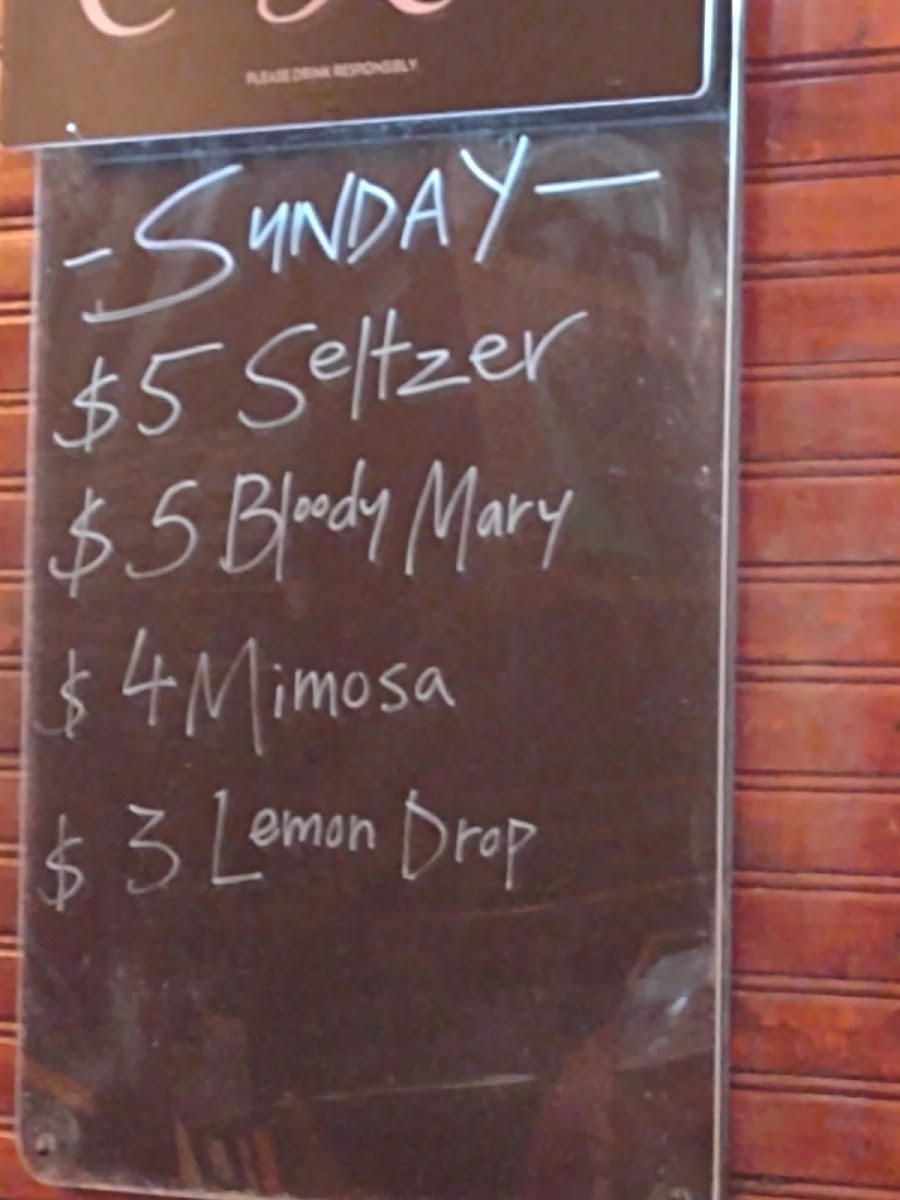 PLEASE DRINK RESPONSIBLY
- SUNDAY —
$5 Seltzer
$5 Bloody Mary
$4 Mimosa
$3 Lemon Drop